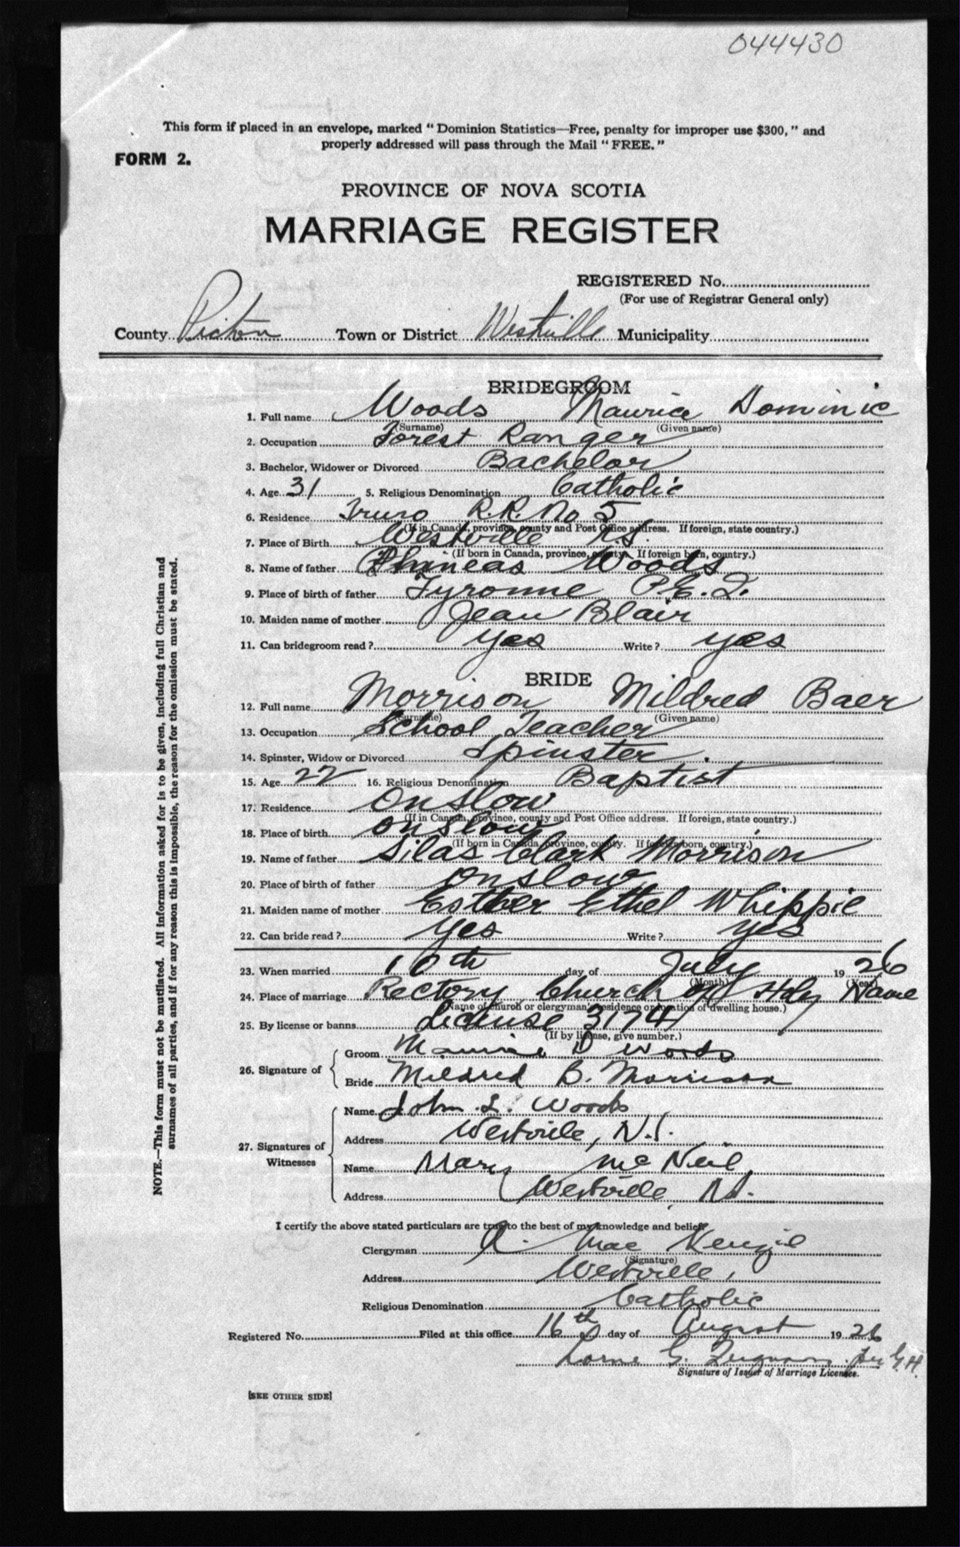 044430
This form if placed in an envelope, marked "Dominion Statistics—Free, penalty for improper use $300," and
properly addressed will pass through the Mail "FREE."
FORM 2.
PROVINCE OF NOVA SCOTIA
MARRIAGE REGISTER
REGISTERED No.
(For use of Registrar General only)
County Pictou Town or District Westville Municipality
BRIDEGROOM
1. Full name Woods Maurice Dominic
(Surname) (Given name)
2. Occupation Forest Ranger
3. Bachelor, Widower or Divorced Bachelor
4. Age 31 5. Religious Denomination Catholic
6. Residence Truro R.R. No 5
(If in Canada, province, county and Post Office address. If foreign, state country.)
7. Place of Birth Westville N.S.
(If born in Canada, province, county. If foreign born, country.)
8. Name of father Phineas Woods
9. Place of birth of father Tyronne P.E.I.
10. Maiden name of mother Jean Blair
11. Can bridegroom read? yes Write? yes
BRIDE
12. Full name Morrison Mildred Baer
(Surname) (Given name)
13. Occupation School Teacher
14. Spinster, Widow or Divorced Spinster
15. Age 22 16. Religious Denomination Baptist
17. Residence Onslow
(If in Canada, province, county and Post Office address. If foreign, state country.)
18. Place of birth Onslow
(If born in Canada, province, county. If foreign born, country.)
19. Name of father Silas Clark Morrison
20. Place of birth of father Onslow
21. Maiden name of mother Esther Ethel Whippie
22. Can bride read? yes Write? yes
23. When married 10th day of July 1926
(Month) (Year)
24. Place of marriage Rectory, Church of Holy Name
(Name of church or clergyman's residence or location of dwelling house.)
25. By license or banns License 31741
(If by license, give number.)
26. Signature of Groom Maurice D Woods
Bride Mildred B. Morrison
27. Signatures of Witnesses
Name John L. Woods
Address Westville, N.S.
Name Mary McNeil
Address Westville, N.S.
I certify the above stated particulars are true to the best of my knowledge and belief.
Clergyman R. MacKenzie
(Signature)
Address Westville,
Religious Denomination Catholic
Registered No. Filed at this office 16th day of August 1926
Lorne G. per G.H.
Signature of Issuer of Marriage Licenses.
[SEE OTHER SIDE]
NOTE.—This form must not be mutilated. All information asked for is to be given, including full Christian and
surnames of all parties, and if for any reason this is impossible, the reason for the omission must be stated.